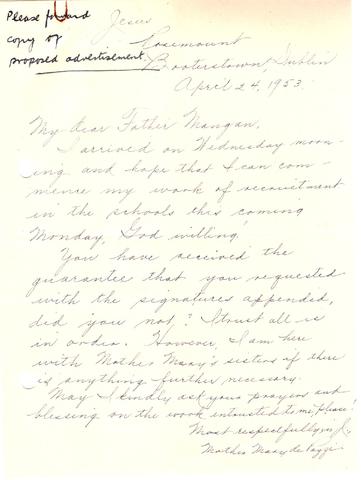 Please forward
copy of
proposed advertisement.
Jesus
Rosemount
Booterstown, Dublin
April 24, 1953.
My dear Father Mangan,
I arrived on Wednesday morn-
ing and hope that I can com-
mence my work of recruitment
in the schools this coming
Monday, God willing.
You have received the
guarantee that you requested
with the signatures appended,
did you not? I trust all is
in order. However, I am here
with Mother Mary's sisters if there
is anything further necessary.
May I kindly ask your prayers and
blessing on the work intrusted to me, please!
Most respectfully in J.,
Mother Mary de Pazzi